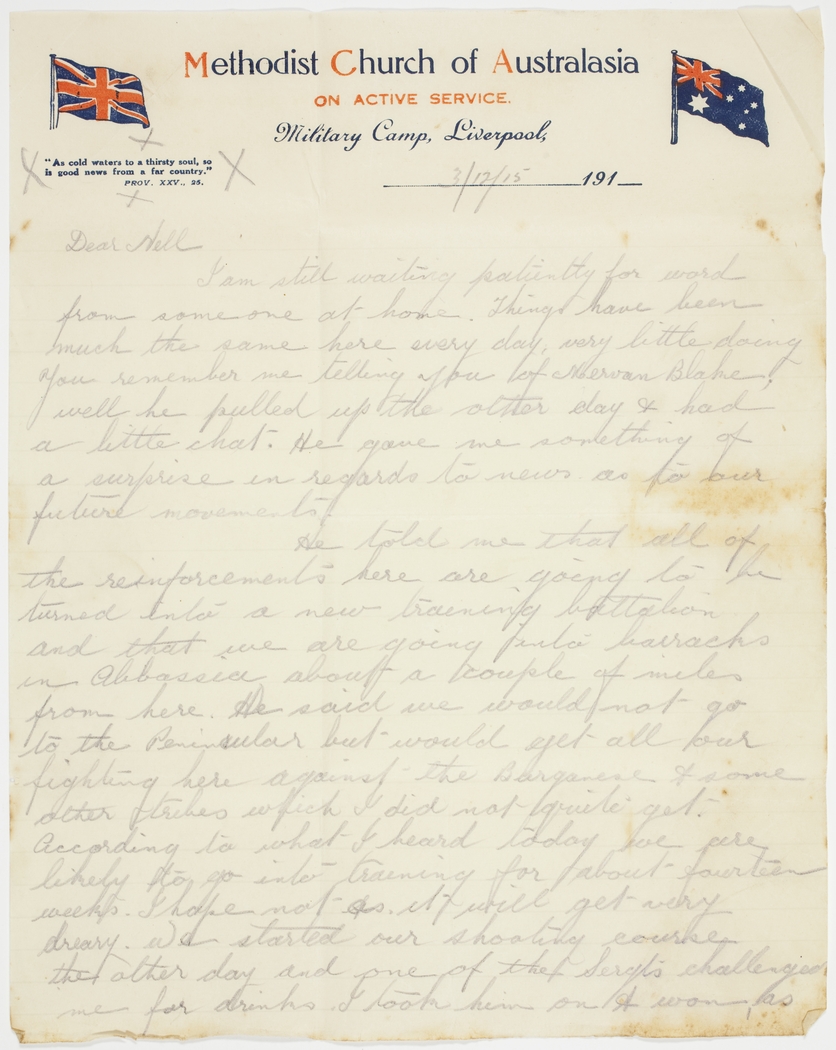 Methodist Church of Australasia
ON ACTIVE SERVICE.
Military Camp, Liverpool,
"As cold waters to a thirsty soul, so
is good news from a far country."
PROV. XXV., 25.
3/12/15 191
Dear Nell
I am still waiting patiently for word
from someone at home. Things have been
much the same here every day, very little doing
You remember me telling you of Mervan Blake,
well he pulled up the other day & had
a little chat. He gave me something of
a surprise in regards to news as to our
future movements.
He told me that all of
the reinforcements here are going to be
turned into a new training battalion
and that we are going into barracks
in Abbassia about a couple of miles
from here. He said we would not go
to the Peninsular but would get all our
fighting here against the Burganese & some
other tribes which I did not quite get.
According to what I heard today we are
likely to go into training for about fourteen
weeks. I hope not as it will get very
dreary. We started our shooting course
the other day and one of the Sergts challenged
me for drinks. I took him on & won, as